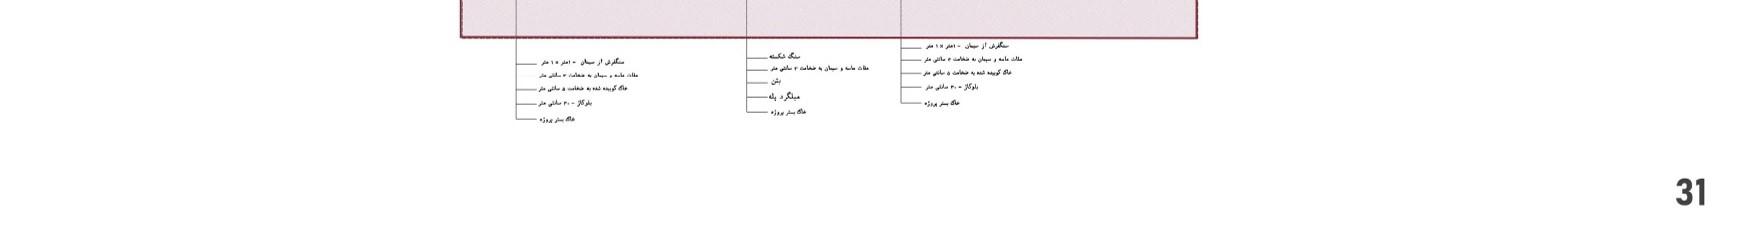 سنگفرش از سیمان - ۱متر x ۱ متر
ملات ماسه و سیمان به ضخامت ۳ سانتی متر
خاک کوبیده شده به ضخامت ۵ سانتی متر
بلوکاژ - ۳۰ سانتی متر
خاک بستر پروژه
سنگ شکسته
ملات ماسه و سیمان به ضخامت ۳ سانتی متر
بتن
میلگرد پله
خاک بستر پروژه
سنگفرش از سیمان - ۱متر x ۱ متر
ملات ماسه و سیمان به ضخامت ۳ سانتی متر
خاک کوبیده شده به ضخامت ۵ سانتی متر
بلوکاژ - ۳۰ سانتی متر
خاک بستر پروژه
31